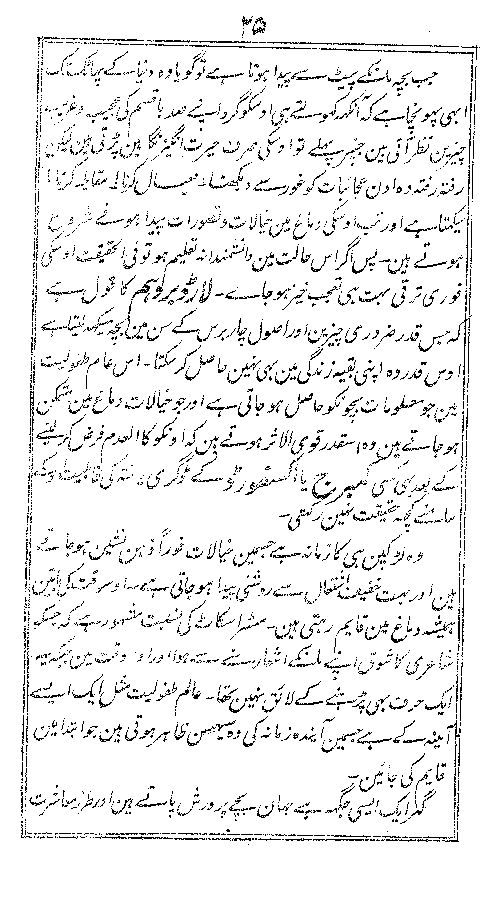 ۲۵
جب بچہ مانکے پیٹ سے پیدا ہوتا ہے تو گویا وہ دنیا کے پھاٹک تک
ابھی پہونچا ہے کہ آنکھہ کھولتے ہی اوسکو گرد اپنے صدہا قسم کی عجیب و غریب
چیزین نظر آتی ہین جنپر پہلے تو اوسکی صرف حیرت انگیز نگاہین پڑتی ہین لیکن
رفتہ رفتہ وہ اون عجائبات کو غور سے دیکھنا خیال کرنا مقابلہ کرنا
سیکھتا ہے اور تب اوسکی دماغ مین خیالات و تصورات پیدا ہونے شروع
ہوتے ہین۔ پس اگر اس حالت مین دانشمندانہ تعلیم ہو تو فی الحقیقت اوسکی
فوری ترقی بہت ہی تعجب خیز ہو جاے۔ لارڈ بروہم کا قول ہے
کہ جس قدر ضروری چیزین اور اصول چار برس کے سن مین بچہ سیکھہ لیتا ہے
اوس قدر وہ اپنی بقیہ زندگی مین بھی نہین حاصل کر سکتا۔ اس عام طفولیت
مین جو معلومات بچونکو حاصل ہو جاتی ہے اور جو خیالات دماغ مین متمکن
ہو جاتے ہین وہ اسقدر قوی الاثر ہوتے ہین کہ اونکو کالعدم فرض کر لینے
کے بعد کسی کیمبرج یا اکسفورڈ کے ڈگری یافتہ کی قابلیت اوسکے
سامنے کچہہ حقیقت نہین رکھتی۔
وہ لڑکپن ہی کا زمانہ ہے جسمین خیالات فوراً ذہن نشین ہو جاتے
ہین اور بہت خفیف اشتعال سے روشنی پیدا ہو جاتی ہے اوسوقت کی باتین
ہمیشہ دماغ مین قایم رہتی ہین۔ مسٹر اسکاٹ کی نسبت مشہور ہے کہ اوسکو
شاعری کا شوق اپنے مانکے اشعار سننے سے ہوا اور اوسوقت مین جبکہ یہ
ایک حرف بھی پڑہنے کے لائق نہین تھا۔ عالم طفولیت مثل ایک ایسے
آئینہ کے ہے جسمین آیندہ زمانہ کی وہ شبیہین ظاہر ہوتی ہین جو ابتدا مین
قایم کی جائین۔
گھر ایک ایسی جگہہ ہے جہان بچے پرورش پاتے ہین اور طرز معاشرت